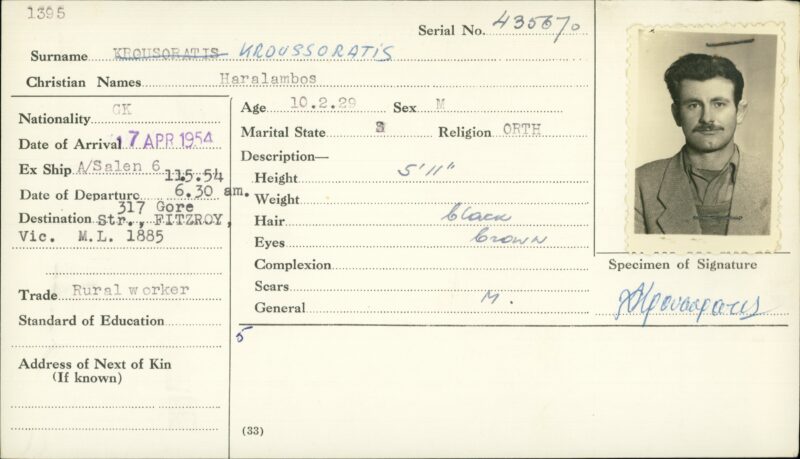 1395
Serial No. 435670
Surname KROUSORATIS KROUSSORATIS
Christian Names Haralambos
Nationality GK
Date of Arrival 17 APR 1954
Ex Ship A/Salen 6
Date of Departure 11.5.54 6.30 am.
Destination 317 Gore
Str., FITZROY,
Vic. M.L. 1885
Trade Rural worker
Standard of Education
Address of Next of Kin
(If known)
Age 10.2.29 Sex M
Marital State S Religion ORTH
Description—
Height 5'11"
Weight
Hair black
Eyes brown
Complexion
Scars
General M.
5
(33)
Specimen of Signature